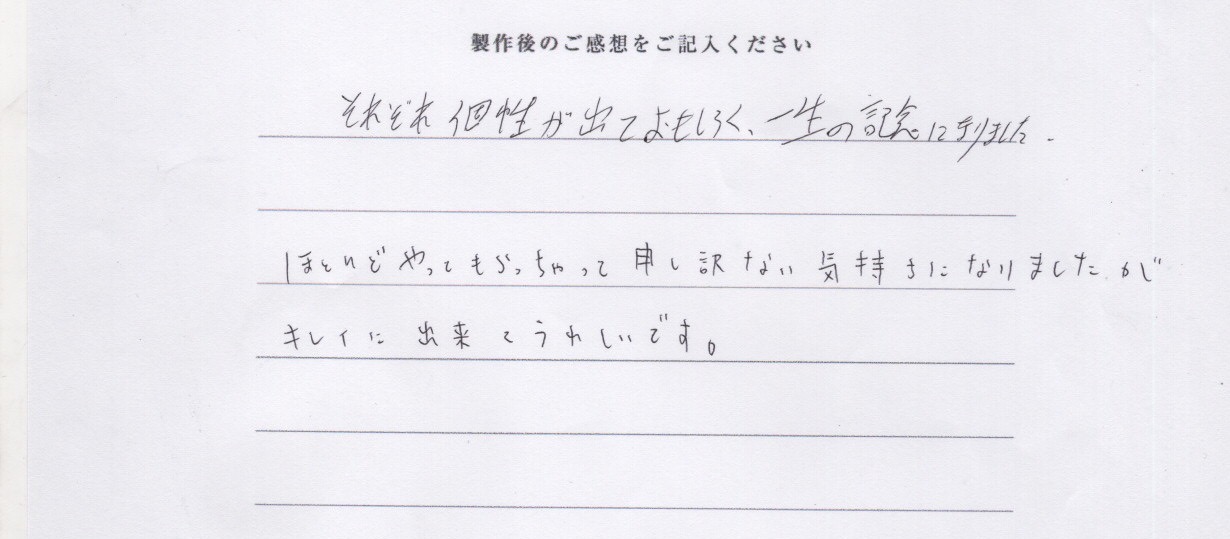 製作後のご感想をご記入ください
それぞれ個性が出ておもしろく、一生の記念になりました.
ほとんどやってもらっちゃって申し訳ない気持ちになりましたが
キレイに出来てうれしいです。